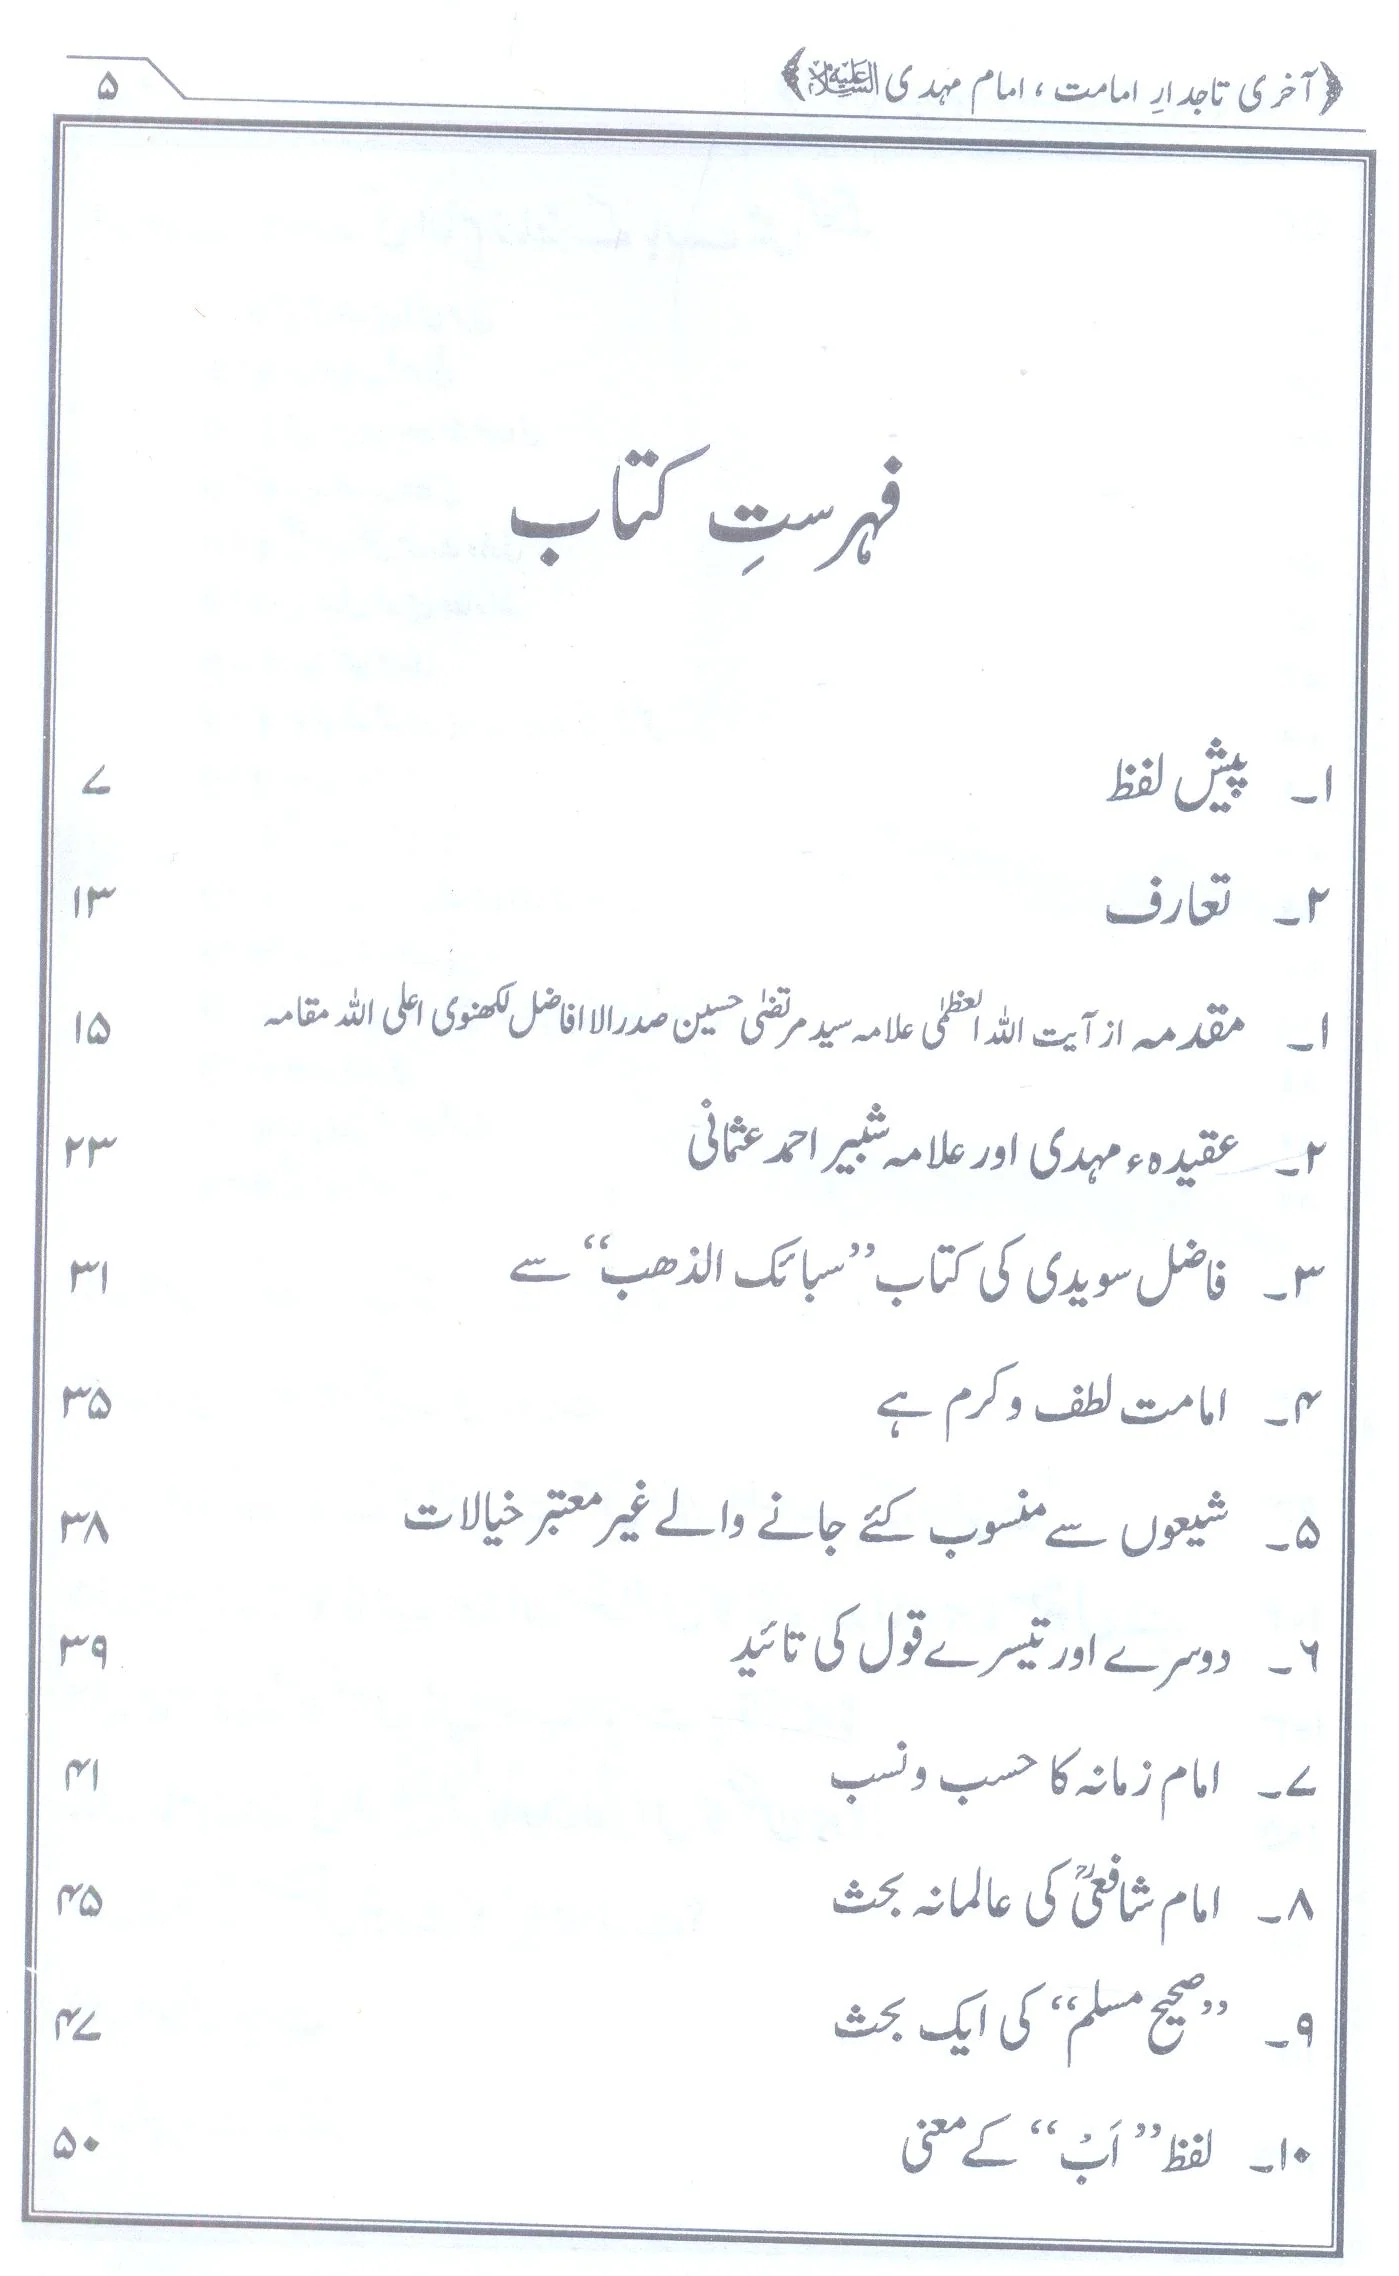 ﴿آخری تاجدارِ امامت ، امام مہدی علیہ السلام﴾ ۵
فہرستِ کتاب
۱۔ پیش لفظ ۷
۲۔ تعارف ۱۳
۱۔ مقدمہ از آیت اللہ العظمٰی علامہ سید مرتضیٰ حسین صدر الاافاضل لکھنوی اعلی اللہ مقامہ ۱۵
۲۔ عقیدہء مہدی اور علامہ شبیر احمد عثمانیؒ ۲۳
۳۔ فاضل سویدی کی کتاب ’’سبائک الذھب‘‘ سے ۳۱
۴۔ امامت لطف و کرم ہے ۳۵
۵۔ شیعوں سے منسوب کئے جانے والے غیر معتبر خیالات ۳۸
۶۔ دوسرے اور تیسرے قول کی تائید ۳۹
۷۔ امام زمانہ کا حسب و نسب ۴۱
۸۔ امام شافعیؒ کی عالمانہ بحث ۴۵
۹۔ ’’صحیح مسلم‘‘ کی ایک بحث ۴۷
۱۰۔ لفظ ’’اَبْ‘‘ کے معنی ۵۰